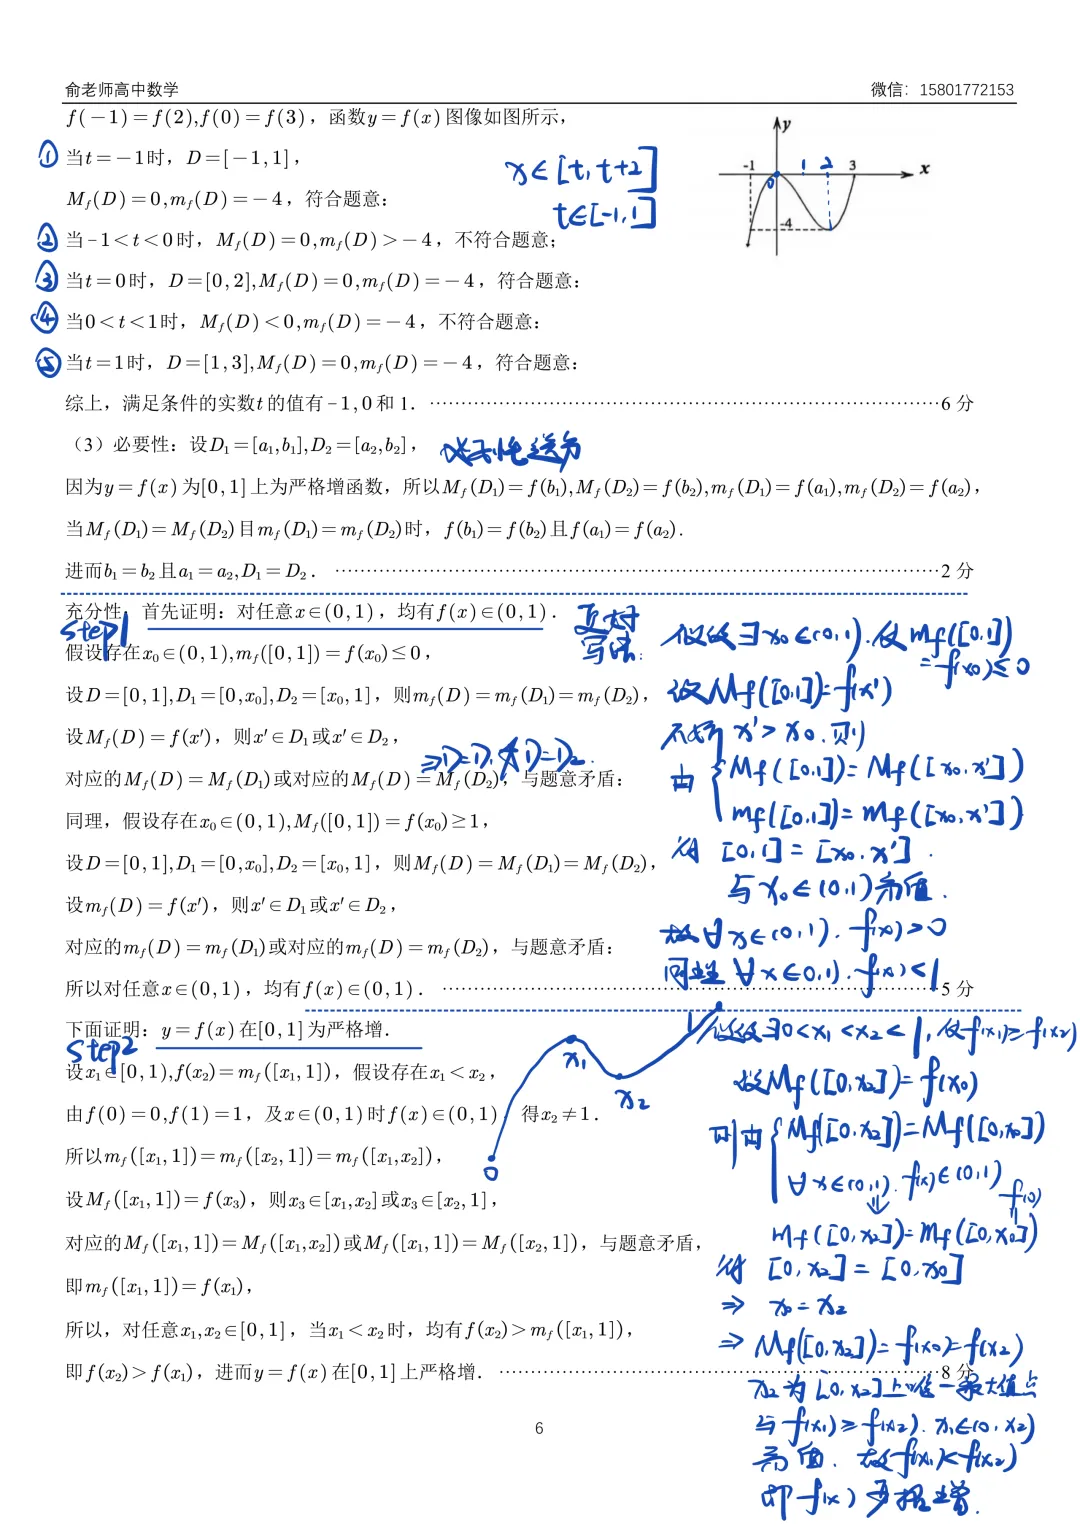 俞老师高中数学 微信：15801772153
f(-1)=f(2),f(0)=f(3)，函数y=f(x)图像如图所示，
① 当t=-1时，D=[-1,1]，
x∈[t,t+2]
t∈[-1,1]
y
-1 0 1 2 3 x
-4
M_f(D)=0,m_f(D)=-4，符合题意：
② 当-1<t<0时，M_f(D)=0,m_f(D)>-4，不符合题意；
③ 当t=0时，D=[0,2],M_f(D)=0,m_f(D)=-4，符合题意：
④ 当0<t<1时，M_f(D)<0,m_f(D)=-4，不符合题意：
⑤ 当t=1时，D=[1,3],M_f(D)=0,m_f(D)=-4，符合题意：
综上，满足条件的实数t的值有-1,0和1. ……6分
（3）必要性：设D₁=[a₁,b₁],D₂=[a₂,b₂]，
因为y=f(x)为[0,1]上为严格增函数，所以M_f(D₁)=f(b₁),M_f(D₂)=f(b₂),m_f(D₁)=f(a₁),m_f(D₂)=f(a₂)，
当M_f(D₁)=M_f(D₂)目m_f(D₁)=m_f(D₂)时，f(b₁)=f(b₂)且f(a₁)=f(a₂).
进而b₁=b₂且a₁=a₂,D₁=D₂. ……2分
充分性 首先证明：对任意x∈(0,1)，均有f(x)∈(0,1).
step1
假设存在x₀∈(0,1),m_f([0,1])=f(x₀)≤0，
设D=[0,1],D₁=[0,x₀],D₂=[x₀,1]，则m_f(D)=m_f(D₁)=m_f(D₂)，
设M_f(D)=f(x′)，则x′∈D₁或x′∈D₂，
⇒D=D₁或D=D₂.
对应的M_f(D)=M_f(D₁)或对应的M_f(D)=M_f(D₂)，与题意矛盾：
同理，假设存在x₀∈(0,1),M_f([0,1])=f(x₀)≥1，
设D=[0,1],D₁=[0,x₀],D₂=[x₀,1]，则M_f(D)=M_f(D₁)=M_f(D₂)，
设m_f(D)=f(x′)，则x′∈D₁或x′∈D₂，
对应的m_f(D)=m_f(D₁)或对应的m_f(D)=m_f(D₂)，与题意矛盾：
所以对任意x∈(0,1)，均有f(x)∈(0,1). ……5分
写法：
假设∃x₀∈(0,1).使m_f([0,1])
=f(x₀)≤0
设M_f([0,1])=f(x′)
不妨 x′>x₀.则
由 M_f([0,1])=M_f([x₀,x′])
m_f([0,1])=m_f([x₀,x′])
得 [0,1]=[x₀,x′].
与x₀∈(0,1)矛盾.
故∀x∈(0,1).f(x)>0
同理 ∀x∈(0,1).f(x)<1
下面证明：y=f(x)在[0,1]为严格增.
step2
设x₁∈[0,1),f(x₂)=m_f([x₁,1])，假设存在x₁<x₂，
由f(0)=0,f(1)=1，及x∈(0,1)时f(x)∈(0,1)，得x₂≠1.
所以m_f([x₁,1])=m_f([x₂,1])=m_f([x₁,x₂])，
设M_f([x₁,1])=f(x₃)，则x₃∈[x₁,x₂]或x₃∈[x₂,1]，
对应的M_f([x₁,1])=M_f([x₁,x₂])或M_f([x₁,1])=M_f([x₂,1])，与题意矛盾，
即m_f([x₁,1])=f(x₁)，
所以，对任意x₁,x₂∈[0,1]，当x₁<x₂时，均有f(x₂)>m_f([x₁,1])，
即f(x₂)>f(x₁)，进而y=f(x)在[0,1]上严格增. ……8分
0 x₁ x₂ 1
假设∃0<x₁<x₂<1,使f(x₁)≥f(x₂)
设M_f([0,x₂])=f(x₀)
则由 M_f([0,x₂])=M_f([0,x₀])
∀x∈(0,1).f(x)∈(0,1)
⇓ f(0)
m_f([0,x₂])=m_f([0,x₀])
得 [0,x₂]=[0,x₀]
⇒ x₀=x₂
⇒ M_f([0,x₂])=f(x₀)=f(x₂)
x₂为[0,x₂]上唯一最大值点
与f(x₁)≥f(x₂).x₁∈(0,x₂)
矛盾.故f(x₁)<f(x₂)
即f(x)严格增.
6